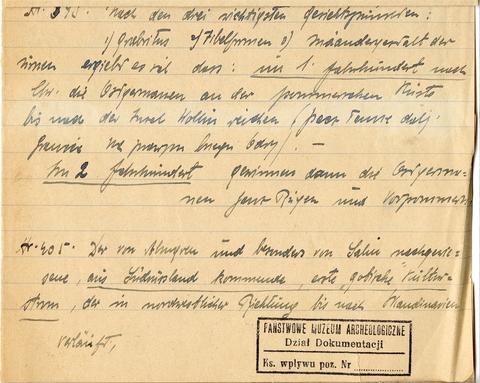 Nach den drei wichtigsten Gesichtspunkten:
1) Grabritus 2) Fibelformen 3) Mäandergestalt der
Urnen ergiebt es sich dass: im 1. Jahrhundert nach
Chr. die Ostgermanen an der pommerschen Küste
bis nach der Insel Wollin reichen
na prawym brzegu Odry). —
Im 2 Jahrhundert gewinnen dann die Ostgerma-
nen ganz Rügen und Vorpommern
Nr. 405. Der von Almgren und besonders von Salin nachgewie-
sene, aus Südrussland kommende, erste gotische Kultur-
strom, der in nordwestlicher Richtung bis nach Skandinavien
verläuft,
PAŃSTWOWE MUZEUM ARCHEOLOGICZNE
Dział Dokumentacji
Ks. wpływu poz. Nr